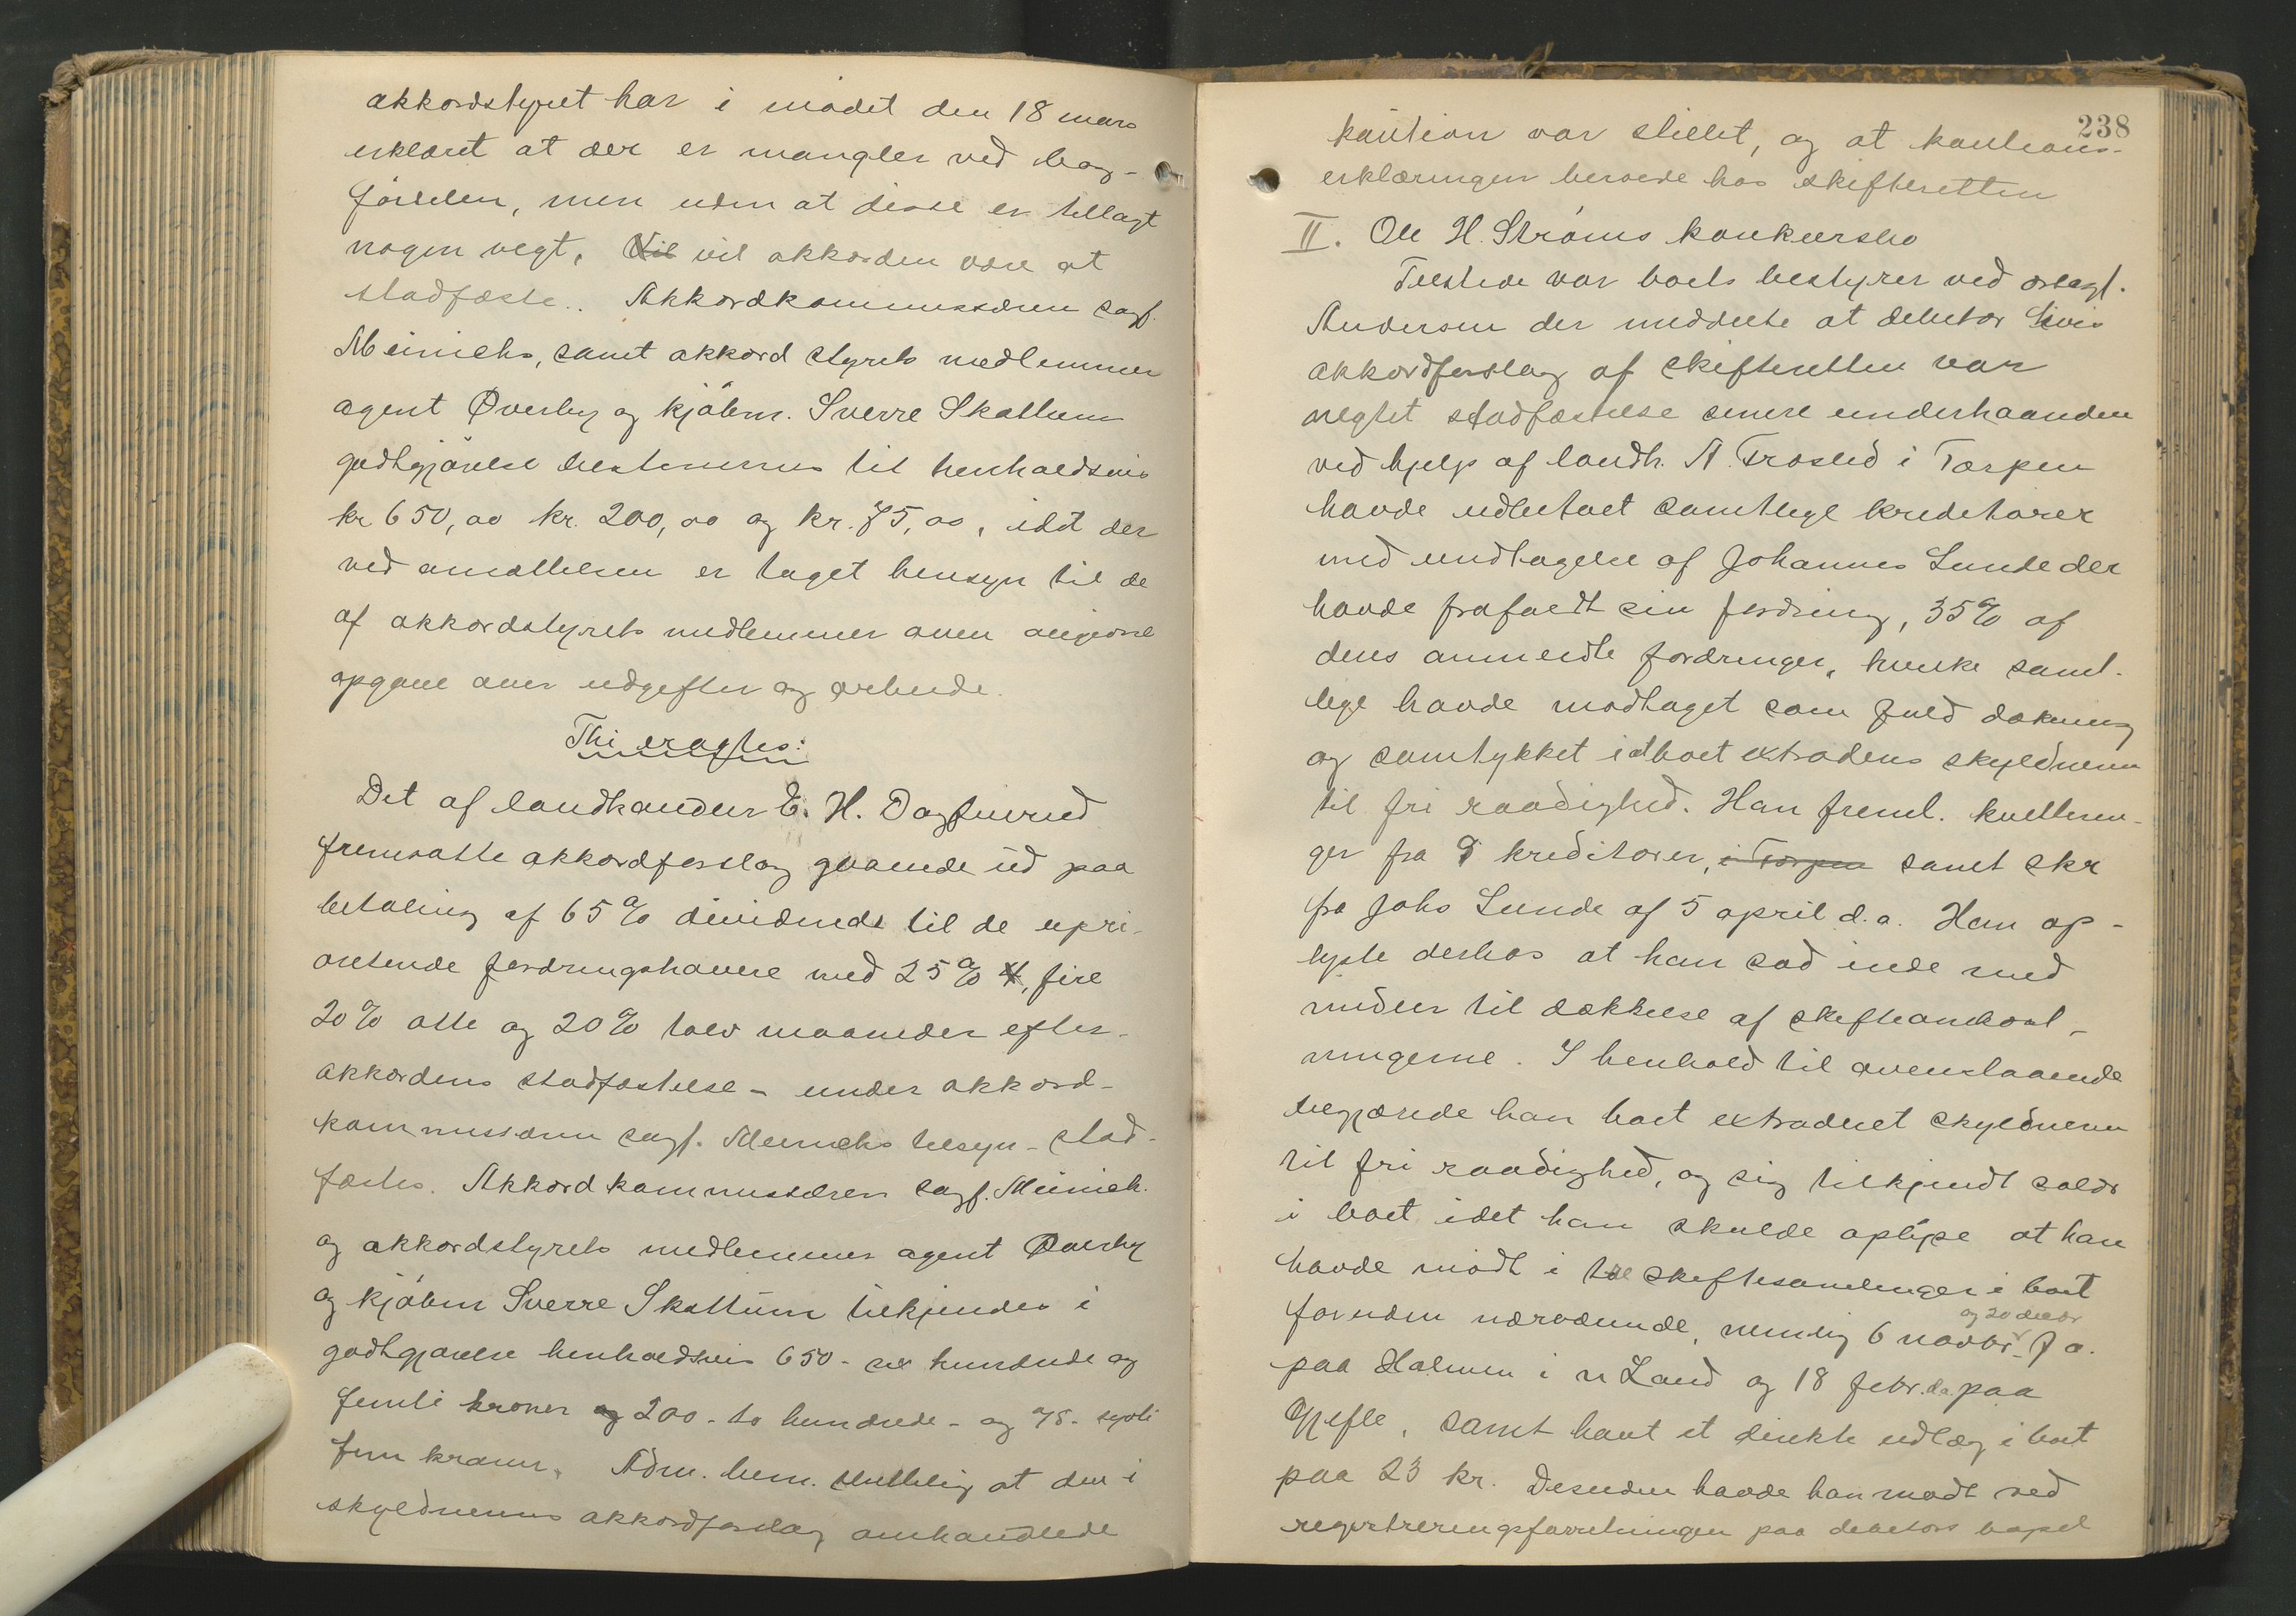 akkordstyret har i mödet den 18 mars
erklæret at der er mangler ved bog-
förselen, men uden at disse er tillagt
nogen vegt, Vil vil akkorden være at
stadfæste. Akkordkommissæren sagf.
Meinichs, samt akkord styrets medlemmer
agent Øverby og kjöbm. Sverre Skattum
godtgjörelse bestemmes til henholdsvis
kr 650,00 kr. 200,00 og kr. 75,00, idet der
ved ansættelsen er taget hensyn til de
af akkordstyrets medlemmer oven angivne
opgave over udgifter og arbeide.
Thi eragtes:
Det af landhandler E. H. Dagfinrud
fremsatte akkordforslag gaaende ud paa
betaling af 65% dividende til de upri-
oriterede fordringshavere med 25% 4, fire
20% otte og 20% tolv maaneder efter
akkordens stadfæstelse - under akkord-
kommissæren sagf. Meinichs tilsyn - stad-
fæstes. Akkordkommissæren sagf. Meinich
og akkordstyrets medlemmer agent Øverby
og kjöbm Sverre Skattum tilkjendes i
godtgjörelse henholdsvis 650 - sex hundrede og
femti kroner og 200 - to hundrede - og 75 - sytti
fem kroner. Adm. bem. at den i
skyldnerens akkordforslag omhandlede
238
kaution var stillet, og at kautions-
erklæringen beroede hos skifteretten
II. Ole H. Ströms konkursbo
Tilstede var boets bestyrer ved orsagf.
Andersen der meddelte at debitor hvis
akkordforslag af skifteretten var
negtet stadfæstelse senere underhaanden
ved hjelp af landh. A. Frøslid i Torpen
havde udbetalt samtlige kreditorer
med undtagelse af Johannes Lunde der
havde frafaldt sin fordring, 35% af
deres anmeldte fordringer, hvilke samt-
lige havde modtaget som fuld dækning
og samtykket i at boet extraderes skyldneren
til fri raadighed. Han freml. kvitterin-
ger fra 9 kreditorer, i Torpen samt skr
fra Johs Lunde af 5 april d.a. Han op-
lyste derhos at han sad inde med
midler til dækkelse af skifteomkost-
ningerne. I henhold til ovenstaaende
begjærede han boet extraderet skyldneren
til fri raadighed, og sig tilkjendt salær
i boet idet han skulde oplyse at han
havde mödt i tre skiftesamlinger i boet
foruden nærværende, nemlig 6 novbr. f a.
og 20 decbr
paa Holmen i n Land og 18 febr. da. paa
Gjefle, samt havt et direkte udlæg i boet
paa 23 kr. Desuden havde han mödt ved
registreringsforretningen paa debitors bopæl